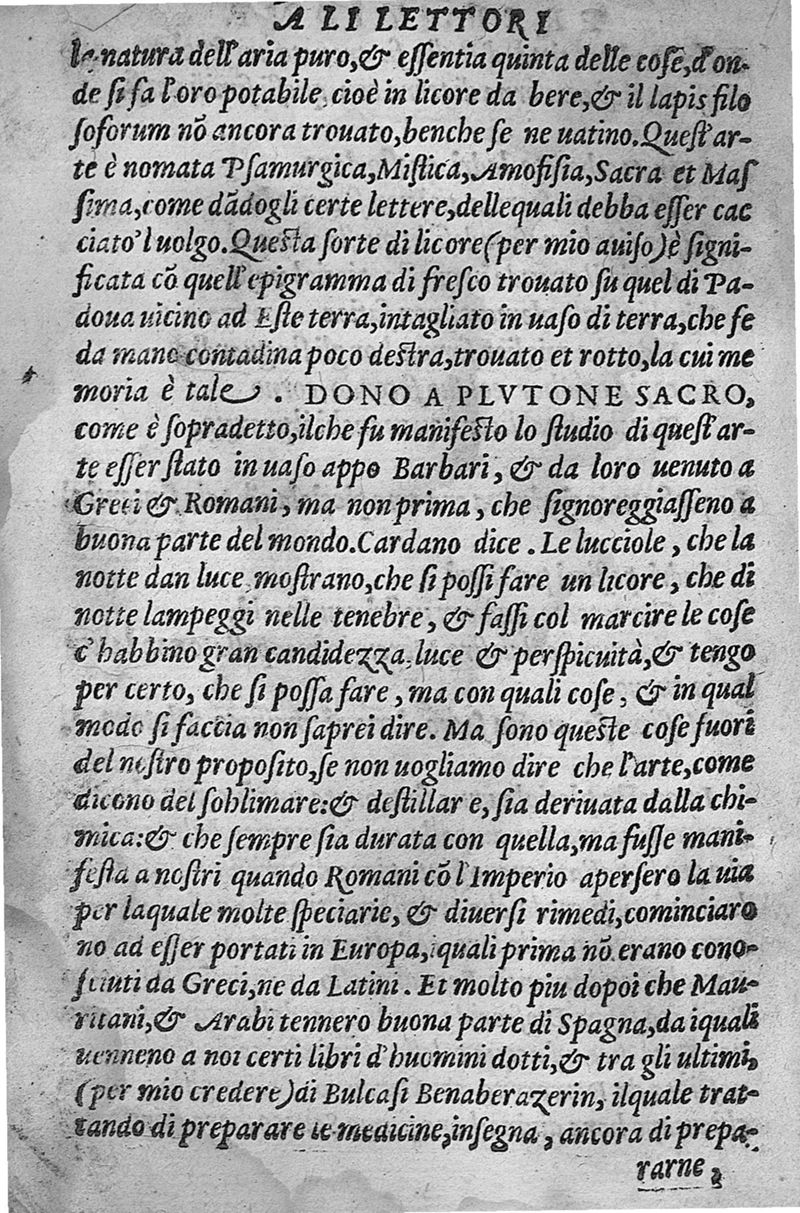 A LI LETTORI
la natura dell'aria puro,& eſſentia quinta delle coſe,d'on-
de ſi fa l'oro potabile,cioè in licore da bere,& il lapis filo
ſoforum nõ ancora trouato,benche ſe ne uatino.Queſt'ar-
te è nomata Pſamurgica,Miſtica,Amofiſia,Sacra et Maſ
ſima,come dãdogli certe lettere,dellequali debba eſſer cac
ciato'l uolgo.Queſta ſorte di licore(per mio auiſo)è ſigni-
ficata cõ quell'epigramma di freſco trouato ſu quel di Pa-
doua uicino ad Eſte terra,intagliato in uaſo di terra,che fe
da mano contadina poco deſtra,trouato et rotto,la cui me
moria è tale . DONO A PLVTONE SACRO,
come è ſopradetto,ilche fu manifeſto lo ſtudio di queſt'ar-
te eſſer ſtato in uaſo appo Barbari, & da loro uenuto a
Greci & Romani, ma non prima, che ſignoreggiaſſeno a
buona parte del mondo.Cardano dice . Le lucciole, che la
notte dan luce moſtrano,che ſi poſſi fare un licore, che di
notte lampeggi nelle tenebre, & faſſi col marcire le coſe
c'habbino gran candidezza,luce & perſpicuità,& tengo
per certo, che ſi poſſa fare, ma con quali coſe, & in qual
modo ſi faccia non ſaprei dire. Ma ſono queſte coſe fuori
del noſtro propoſito,ſe non uogliamo dire che l'arte,come
dicono del ſoblimare:& deſtillar e, ſia deriuata dalla chi-
mica:& che ſempre ſia durata con quella,ma fuſſe mani-
feſta a noſtri quando Romani cõ l'Imperio aperſero la uia
per laquale molte ſpeciarie, & diuerſi rimedi,cominciaro
no ad eſſer portati in Europa,iquali prima nõ erano cono-
ſciuti da Greci,ne da Latini. Et molto piu dopoi che Mau-
ritani,& Arabi tennero buona parte di Spagna,da iquali
uenneno a noi certi libri d'huomini dotti,& tra gli ultimi,
(per mio credere)di Bulcaſi Benaberazerin, ilquale trat-
tando di preparare le medicine,inſegna, ancora di prepa-
rarne,